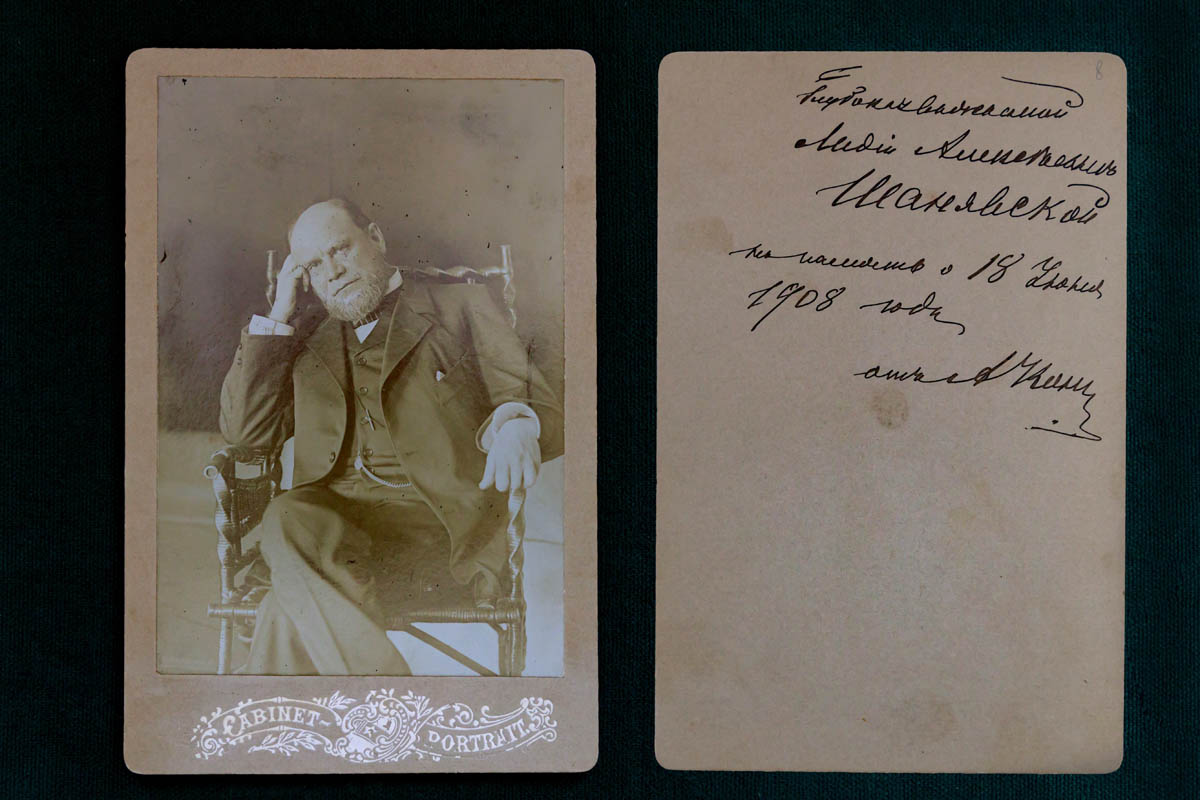 CABINET-
PORTRAIT.
8
Глубокоуважаемой
Лидіи Алексѣевнѣ
Шанявской
на память о 18 Іюня
1908 года
отъ АКони